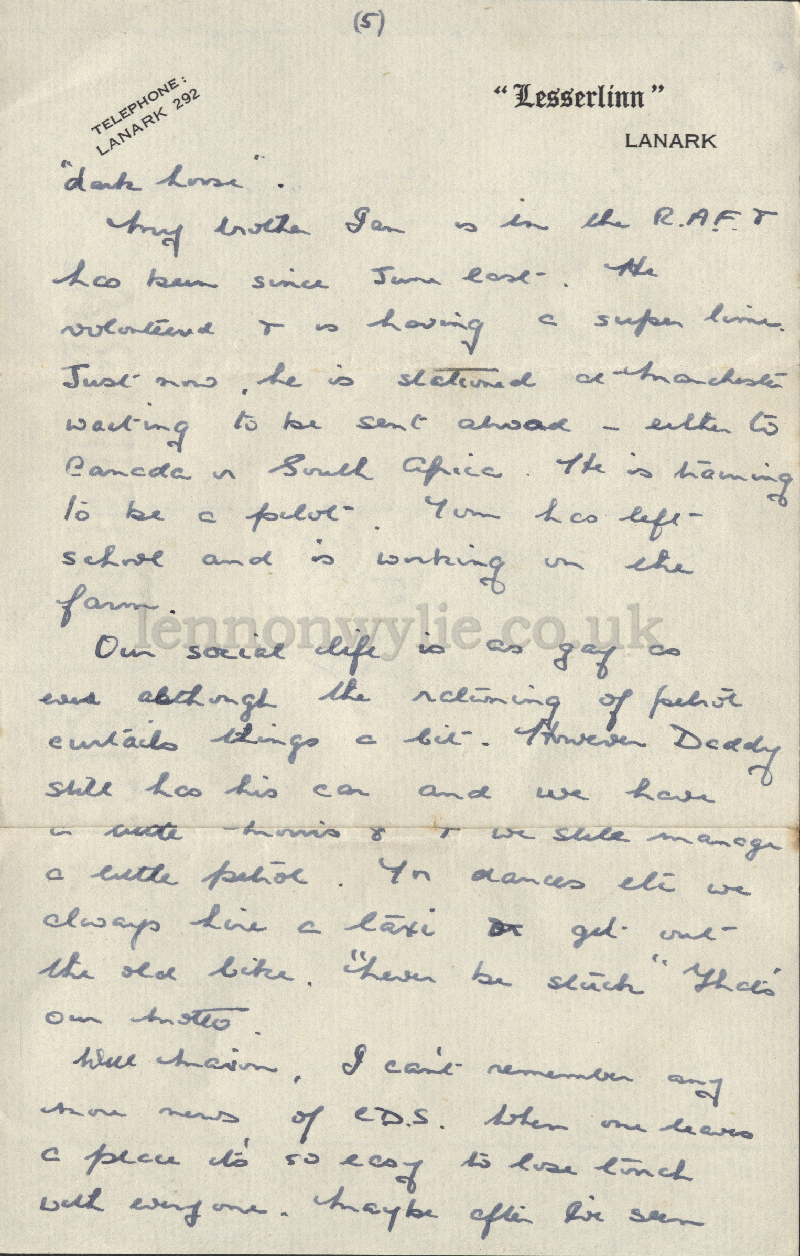 (5)
TELEPHONE:
LANARK 292
"Lesserlinn"
LANARK
"dark horse".
My brother Ian is in the R.A.F. &
has been since June last. He
volunteered & is having a super time.
Just now, he is stationed at Manchester
waiting to be sent abroad – either to
Canada or South Africa. He is training
to be a pilot. Tom has left
school and is working on the
farm.
lennonwylie.co.uk
Our social life is as gay as
ever although the rationing of petrol
curtails things a bit. However Daddy
still has his car and we have
a wee Morris 8 & we still manage
a little petrol. For dances etc we
always hire a taxi or get out
the old bike. "Never be stuck" That's
our motto.
Well Marion, I can't remember any
more news of C.D.S. When one leaves
a place it's so easy to lose touch
with everyone. Maybe after I've seen